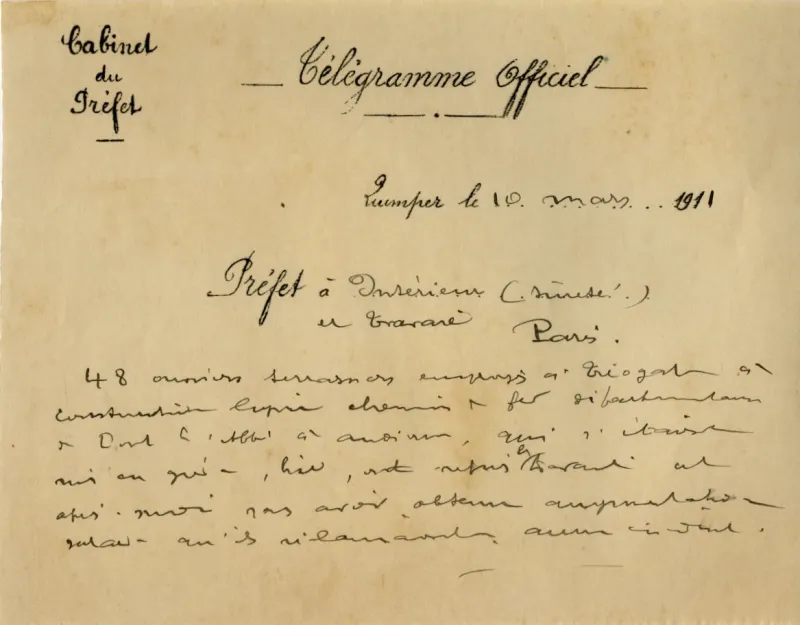 Cabinet
du
Préfet
Télégramme Officiel
Quimper le 10 mars 1911
Préfet à Intérieur (Sûreté)
et Travail Paris.
48 ouvriers terrassiers employés à Tréogat à
construction ligne chemin de fer départementaux
de Pont l'Abbé à Audierne, qui s'étaient
mis en grève, hier, ont repris le travail
pas avoir obtenu augmentation
salaire qu'ils réclamaient. aucun incident.